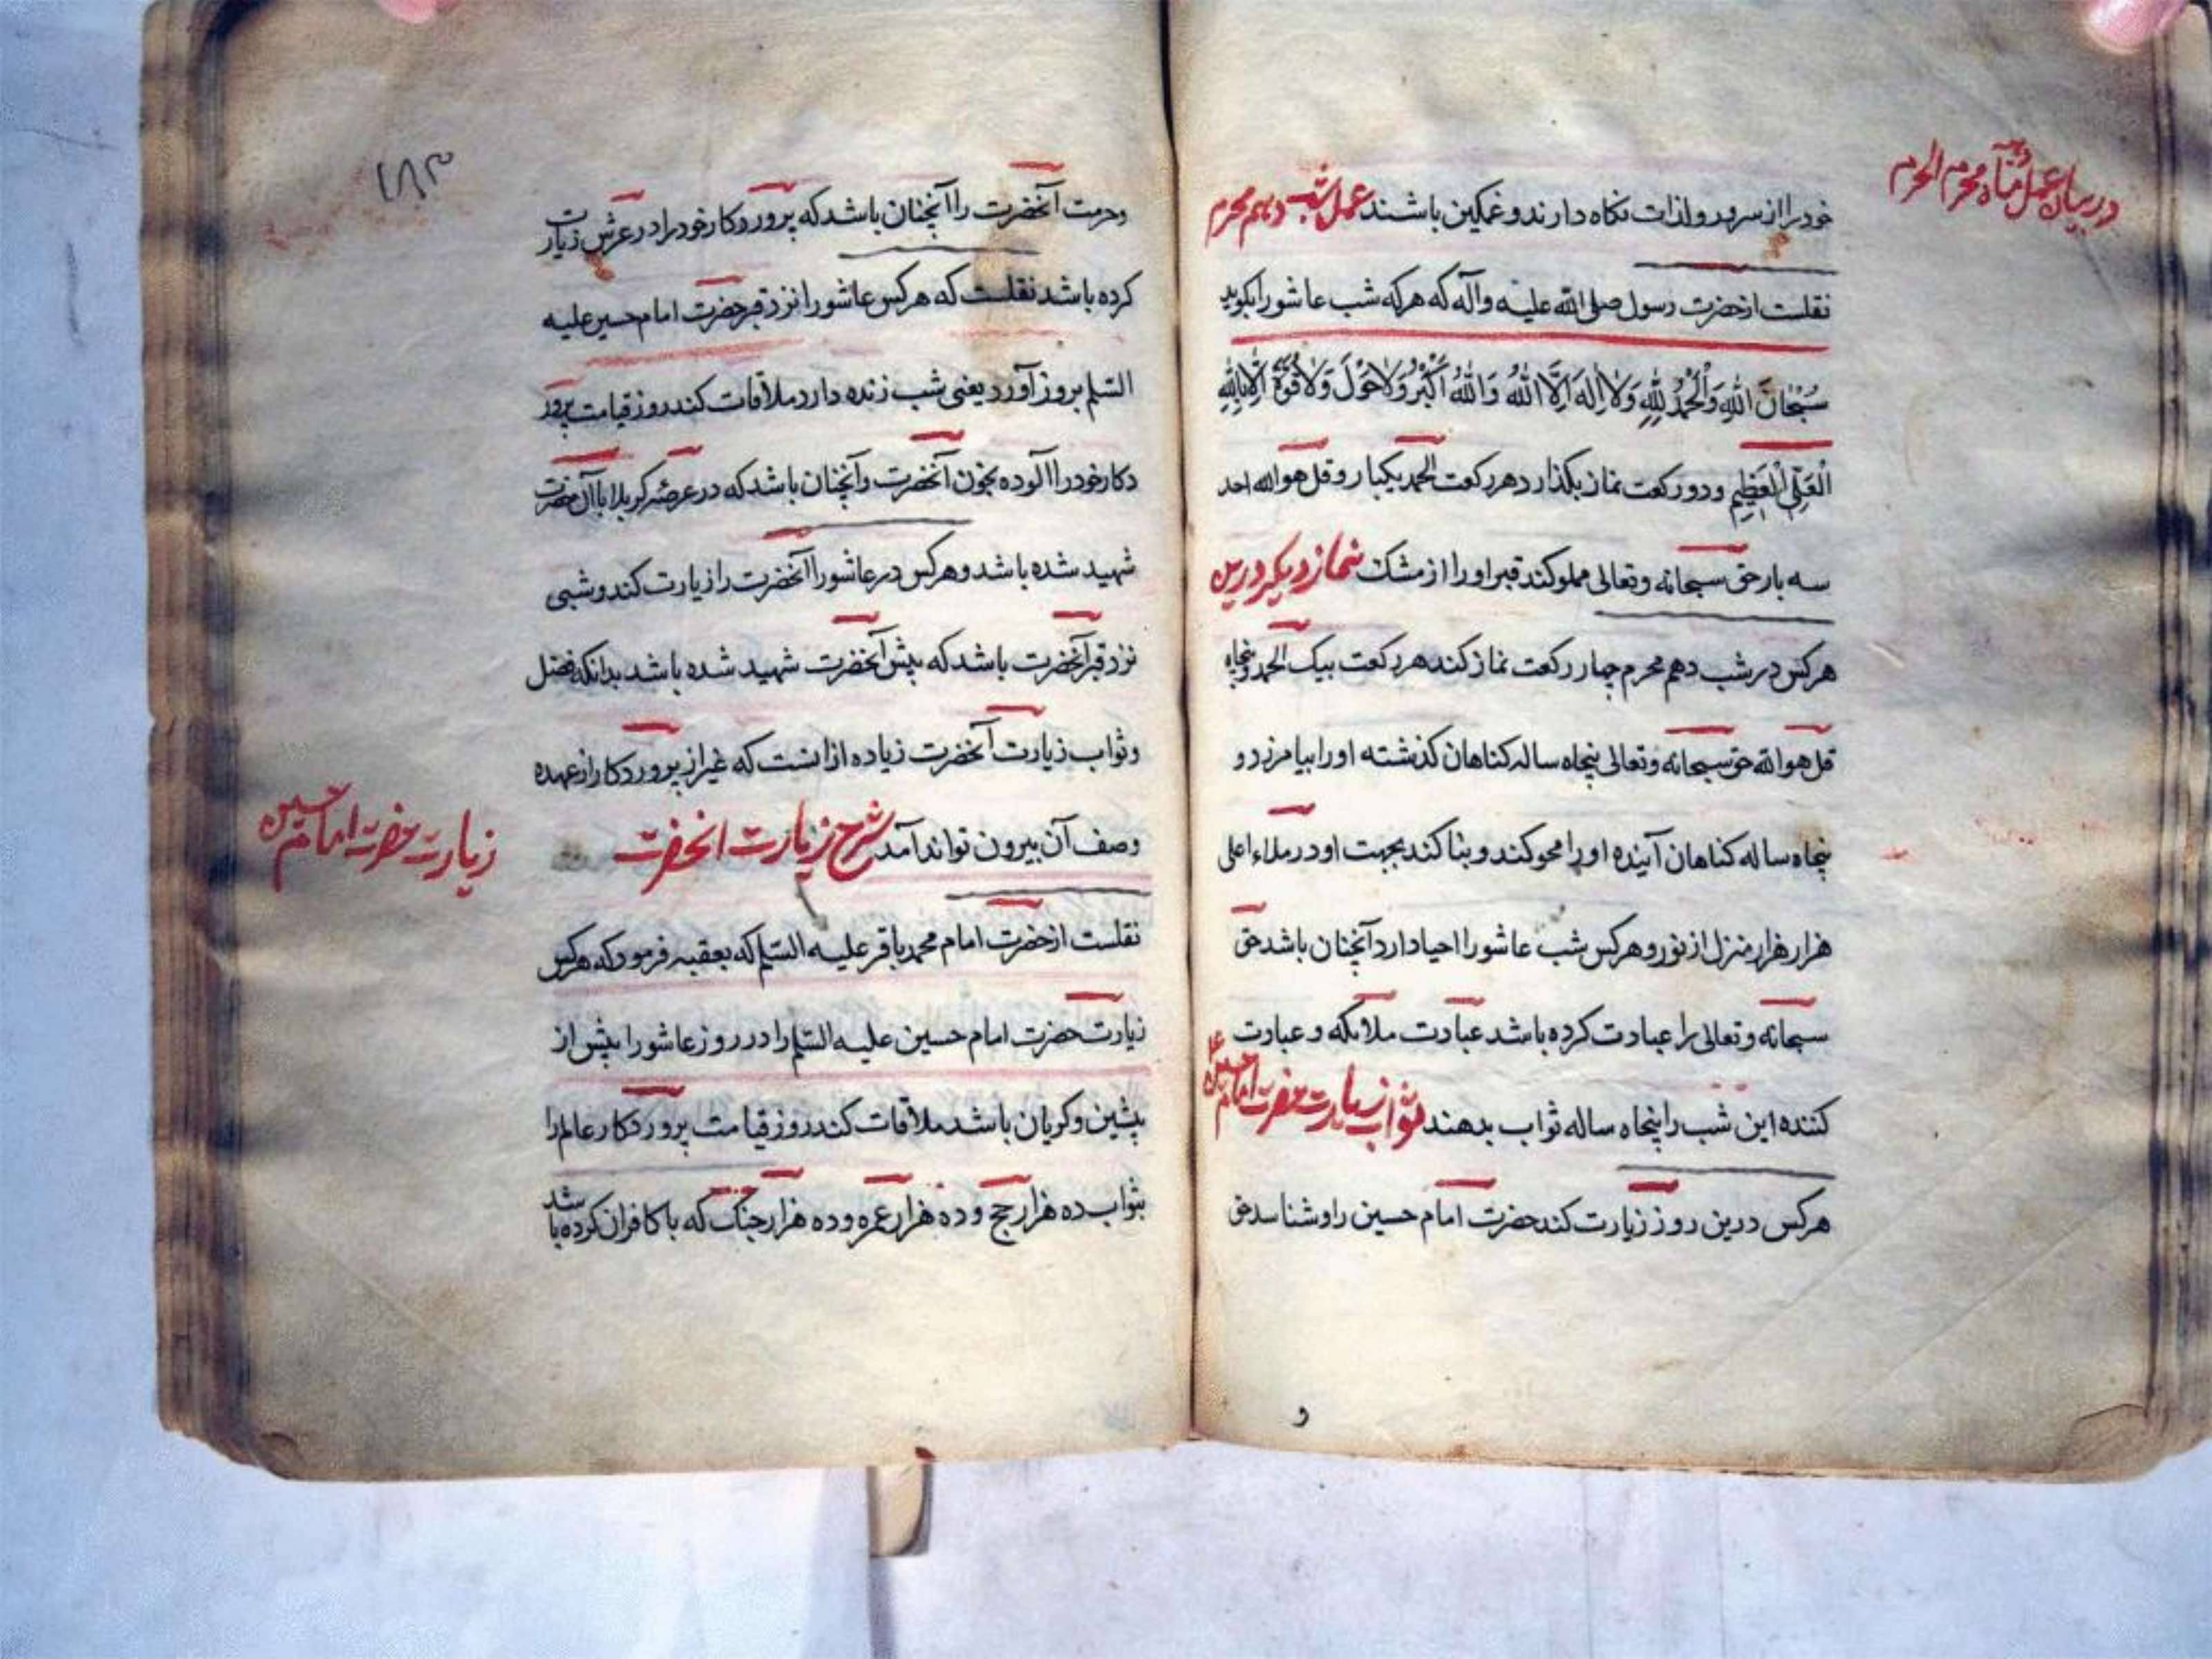 در بیان عمل ماه محرم الحرام
خود را از سرور و لذات نکاه دارند و غمکین باشند عمل شب دهم محرم
نقلست از حضرت رسول صلی الله علیه وآله که هر که شب عاشورا بکوید
سُبْحٰانَ اللّٰهِ وَالْحَمْدُ لِلّٰهِ وَلاٰ اِلٰهَ اِلَّا اللّٰهُ وَ اللّٰهُ اَکْبَرُ وَلاٰحَوْلَ وَلاٰ قُوَّةَ اِلّٰا بِاللّٰهِ
الْعَلِیِّ الْعَظِیمِ و دو رکعت نماز بکذارد هر رکعت الحمد یکبار و قل هو الله احد
سه بار حق سبحانه وتعالی مملو کند قبر او را از مشک نماز دیکر درین
هر کس در شب دهم محرم چهار رکعت نماز کند هر رکعت بیک الحمد و پنجاه
قل هو الله حق سبحانه وتعالی پنجاه ساله کناهان کذشته او را بیامرزد و
پنجاه ساله کناهان آینده او را محو کند و بنا کند بجهت او در ملاء اعلی
هزار هزار منزل از نور و هر کس شب عاشورا احیا دارد آنچنان باشد حق
سبحانه وتعالی را عبادت کرده باشد عبادت ملائکه و عبادت
کننده این شب را پنجاه ساله ثواب بدهند ثواب زیارت حضرت امام حسین ع
هر کس درین روز زیارت کند حضرت امام حسین را و شناسد حق
و
۱۸۳
وحرمت آنحضرت را آنچنان باشد که پروردکار خود را در عرش زیارت
کرده باشد نقلست که هر کس عاشورا نزد قبر حضرت امام حسین علیه
السّلم بروز آورد یعنی شب زنده دارد ملاقات کند روز قیامت پرور
دکار خود را آلوده بخون آنحضرت وآنچنان باشد که در عرصهٔ کربلا با آن حضرت
شهید شده باشد و هر کس در عاشورا آنحضرت را زیارت کند و شبی
نزد قبر آنحضرت باشد که پیش آنحضرت شهید شده باشد بدانکه فضل
وثواب زیارت آنحضرت زیاده از انست که غیر از پروردکار از عهده
وصف آن بیرون تواند آمد شرح زیارت انحضرت
زیارت حضرت امام حسین
نقلست از حضرت امام محمد باقر علیه السّلم که بعقبه فرمود که هر کس
زیارت حضرت امام حسین علیه السّلم را در روز عاشورا پیش از
پیشین و کریان باشد ملاقات کند روز قیامت پروردکار عالم را
بثواب ده هزار حج و ده هزار عمره و ده هزار جنک که با کافران کرده باشد